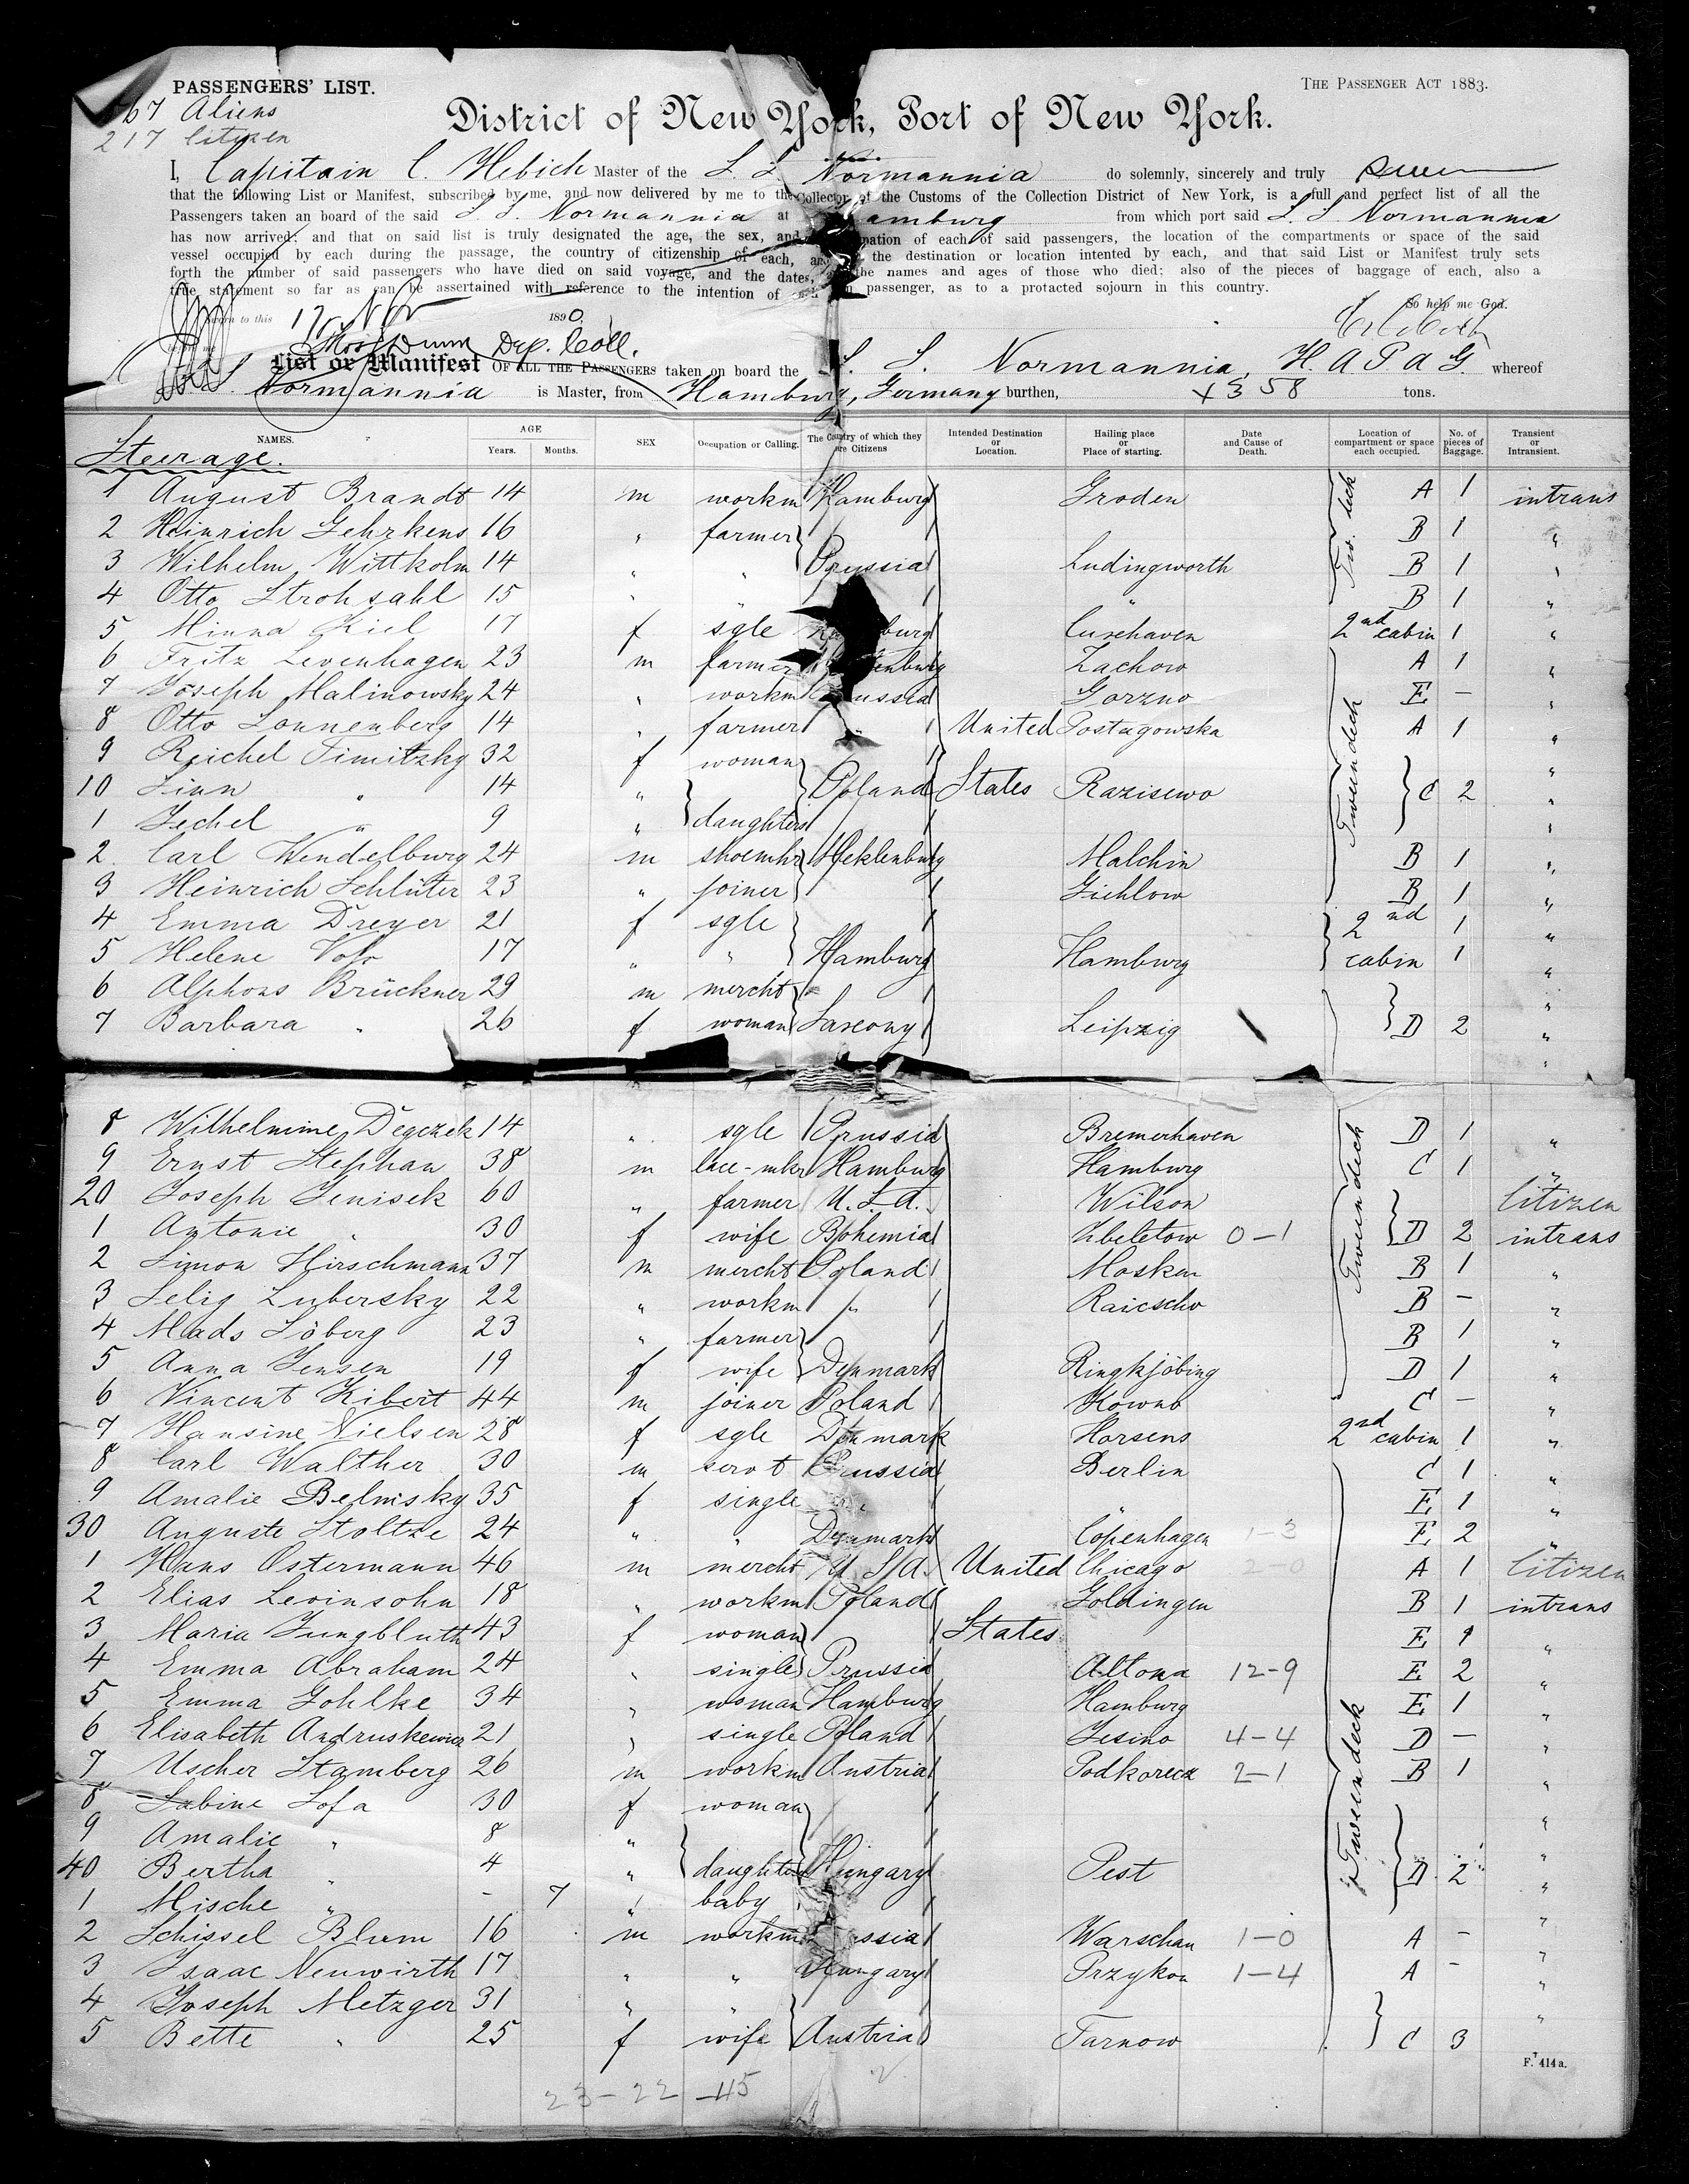 PASSENGERS' LIST.
THE PASSENGER ACT 1883.
67 Aliens
217 Citizen
District of New York, Port of New York.
I, Capitain C. Hebich Master of the S. S. Normannia do solemnly, sincerely and truly swear
that the following List or Manifest, subscribed by me, and now delivered by me to the Collector of the Customs of the Collection District of New York, is a full and perfect list of all the
Passengers taken an board of the said S. S. Normannia at Hamburg from which port said S. S. Normannia
has now arrived; and that on said list is truly designated the age, the sex, and nation of each of said passengers, the location of the compartments or space of the said
vessel occupied by each during the passage, the country of citizenship of each, and the destination or location intented by each, and that said List or Manifest truly sets
forth the number of said passengers who have died on said voyage, and the dates, the names and ages of those who died; also of the pieces of baggage of each, also a
true statement so far as can be assertained with reference to the intention of each passenger, as to a protacted sojourn in this country.
So help me God.
Sworn to this 17 1890
Dep. Coll.
List or Manifest OF ALL THE PASSENGERS taken on board the S. S. Normannia, H. A P. A G. whereof
S. Normannia is Master, from Hamburg, Germany burthen, 358 tons.
NAMES. AGE Years. Months. SEX Occupation or Calling. The Country of which they are Citizens Intended Destination or Location. Hailing place or Place of starting. Date and Cause of Death. Location of compartment or space each occupied. No. of pieces of Baggage. Transient or Intransient.
Steerage.
1 August Brandt 14 m workm Hamburg Groden Tw. deck A 1 intrans
2 Heinrich Gehrkens 16 " farmer B 1 "
3 Wilhelm Wittkolm 14 " " Prussia Ludingworth B 1 "
4 Otto Strohsahl 15 " " " B 1 "
5 Minna Kiel 17 f sgle burg Cuxehaven 2nd cabin 1 "
6 Fritz Levenhagen 23 m farmer enburg Zachow A 1 "
7 Joseph Malinowsky 24 " workm Prussia Gorzno Tweendeck E - "
8 Otto Sonnenberg 14 " farmer " United Postagowska A 1 "
9 Reichel Timitzky 32 f woman "
10 Linn " 14 " Poland States Razisewo C 2 "
1 Jechel " 9 " daughters "
2 Carl Wendelburg 24 m shoemkr Meklenburg Malchin B 1 "
3 Heinrich Schlüter 23 " joiner Gichlow B 1 "
4 Emma Dreyer 21 f sgle 2nd 1 "
5 Helene Voss 17 " " Hamburg Hamburg cabin 1 "
6 Alphons Brückner 29 m mercht "
7 Barbara " 26 f woman Saxony Leipzig D 2 "
8 Wilhelmine Degezek 14 " sgle Prussia Bremerhaven D 1 "
9 Ernst Stephan 38 m lace-mkr Hamburg Hamburg Tweendeck C 1 "
20 Joseph Jenisek 60 " farmer U.S.A. Wilson Citizen
1 Antonie " 30 f wife Bohemia Zbeletow 0-1 D 2 intrans
2 Simon Hirschmann 37 m mercht Poland Moskau B 1 "
3 Selig Lubersky 22 " workm " Raicscho B - "
4 Mads Söberg 23 " farmer B 1 "
5 Anna Jensen 19 f wife Denmark Ringkjöbing D 1 "
6 Vincent Kibert 44 m joiner Poland Kowno C - "
7 Hansine Nielsen 28 f sgle Denmark Horsens 2nd cabin 1 "
8 Carl Walther 30 m servt Prussia Berlin C 1 "
9 Amalie Belinsky 35 f single " " E 1 "
30 Auguste Stoltze 24 " " Denmark Copenhagen 1-3 E 2 "
1 Hans Ostermann 46 m mercht U.S.A. United Chicago 2-0 A 1 Citizen
2 Elias Levinsohn 18 " workm Poland Goldingen B 1 intrans
3 Maria Jungbluth 43 f woman States E 1 "
4 Emma Abraham 24 " single Prussia Altona 12-9 E 2 "
5 Emma Gohlke 34 " woman Hamburg Hamburg E 1 "
6 Elisabeth Andruskewicz 21 " single Poland Jesino 4-4 D - "
7 Uscher Stamberg 26 m workm Austria Podkorecz 2-1 Tweendeck B 1 "
8 Sabine Sofa 30 f woman "
9 Amalie " 8 " "
40 Bertha " 4 " daughters Hungary Pest D 2 "
1 Mische " - 7 " baby "
2 Schissel Blum 16 m workm ssia Warschau 1-0 A - "
3 Isaac Neuwirth 17 " " Hungary Przykon 1-4 A - "
4 Joseph Metzger 31 " " "
5 Bette " 25 f wife Austria Tarnow C 3
F. 414a.
23-22-45